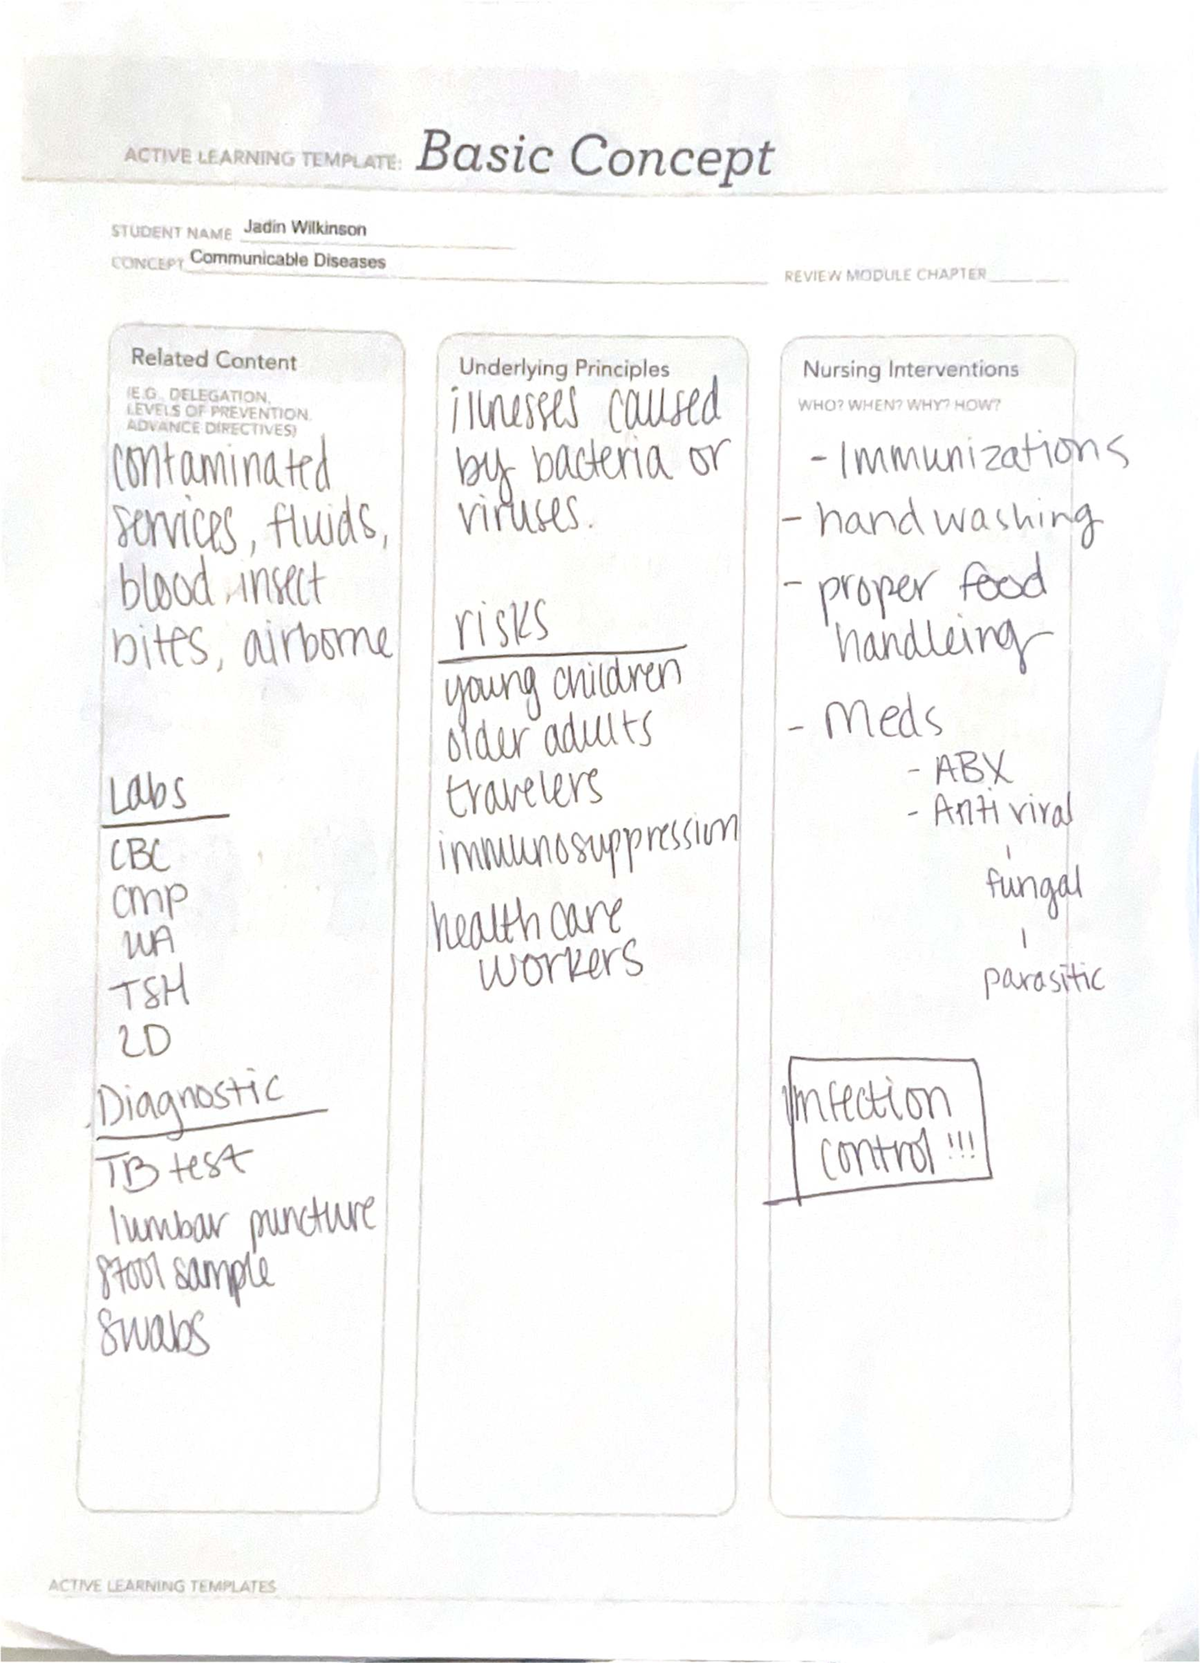 ACTIVE LEARNING TEMPLATE: Basic Concept
STUDENT NAME Jadin Wilkinson
CONCEPT Communicable Diseases
REVIEW MODULE CHAPTER
Related Content
(E.G., DELEGATION,
LEVELS OF PREVENTION,
ADVANCE DIRECTIVES)
contaminated
services, fluids,
blood, insect
bites, airborne
Labs
CBC
CMP
UA
TSH
2D
Diagnostic
TB test
lumbar puncture
stool sample
swabs
Underlying Principles
illnesses caused
by bacteria or
viruses.
risks
young children
older adults
travelers
immunosuppression
health care
workers
Nursing Interventions
WHO? WHEN? WHY? HOW?
- Immunizations
- hand washing
- proper food
handleing
- Meds
- ABX
- Anti viral
fungal
parasitic
Infection
control !!!
ACTIVE LEARNING TEMPLATES